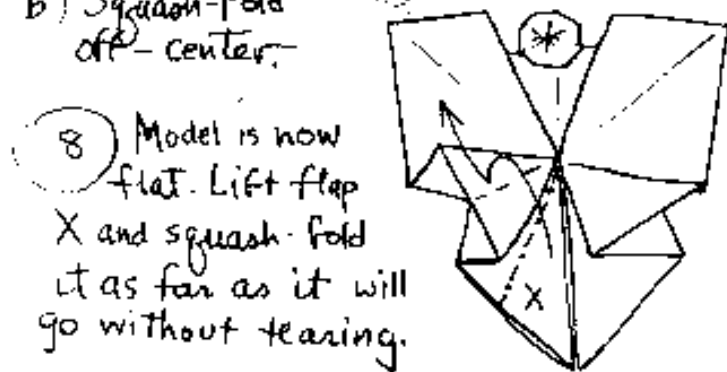 b) Squash-fold
off-center.
*
8 Model is now
flat. Lift flap
X and squash-fold
it as far as it will
go without tearing.
X